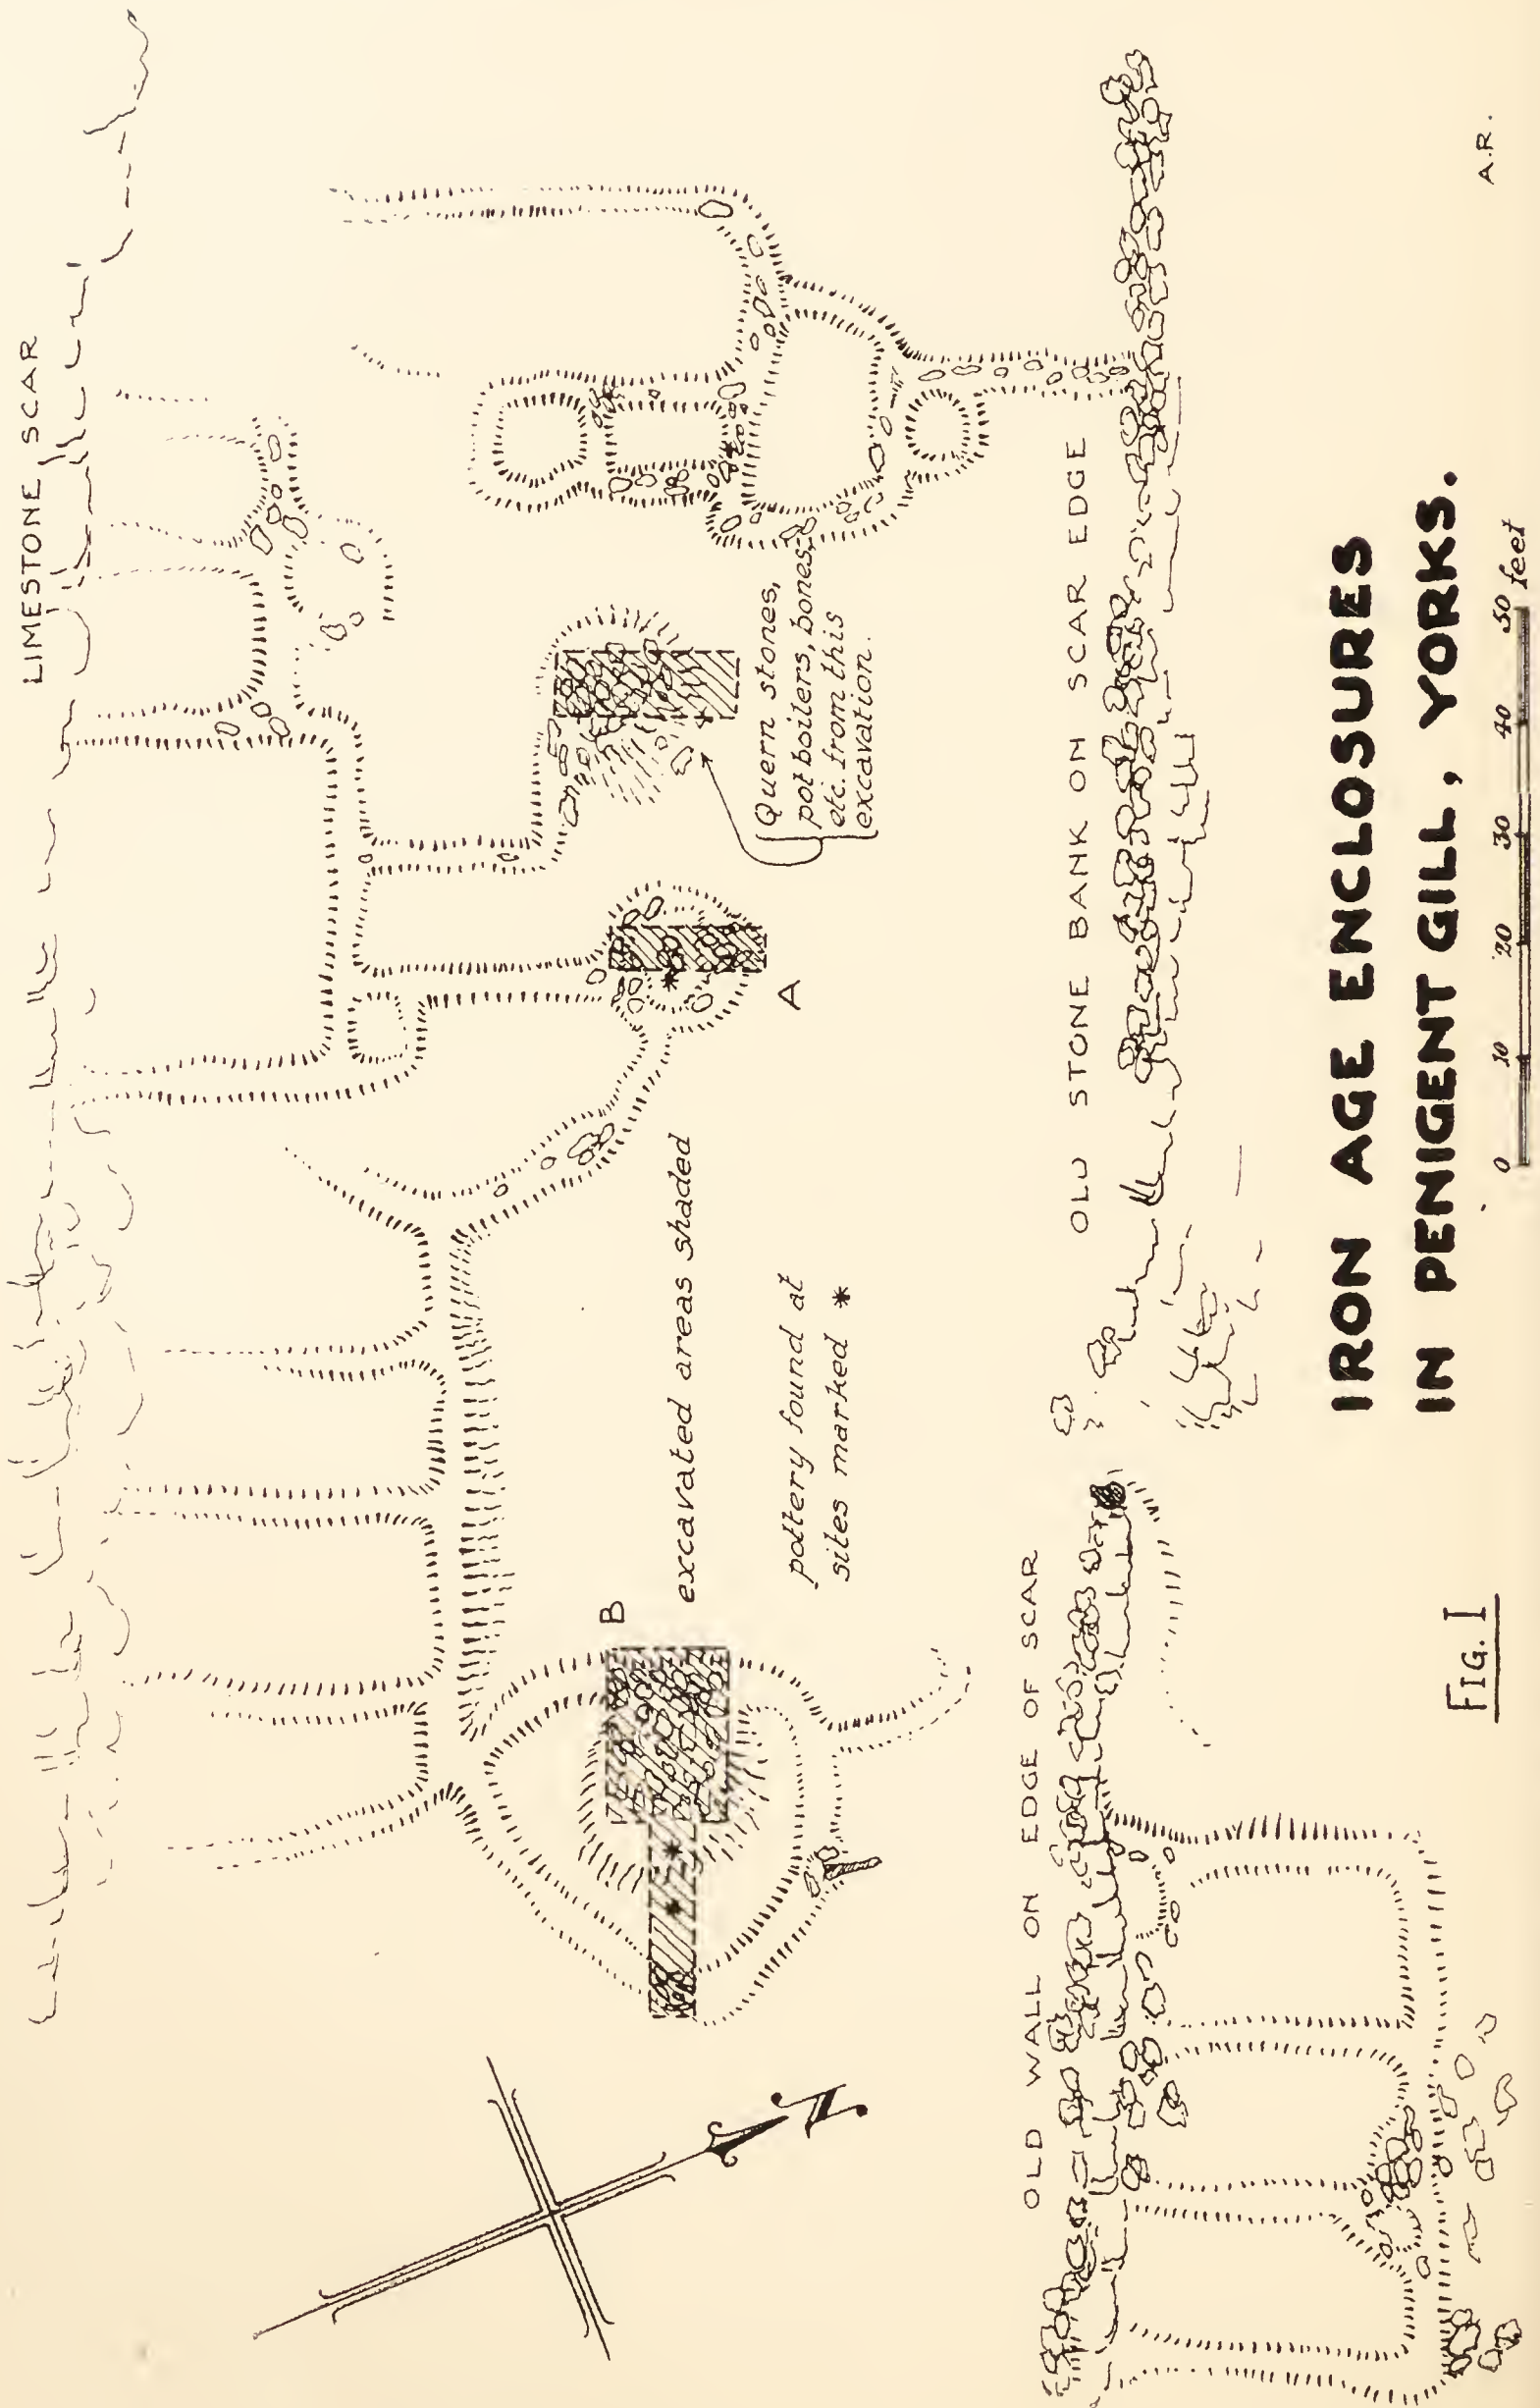 LIMESTONE SCAR
Quern stones,
pot boilers, bones,
etc. from this
excavation.
A
B
excavated areas shaded
pottery found at
sites marked *
N
OLD STONE BANK ON SCAR EDGE
OLD WALL ON EDGE OF SCAR
IRON AGE ENCLOSURES
IN PENIGENT GILL, YORKS.
0 10 20 30 40 50 feet
FIG. I
A.R.